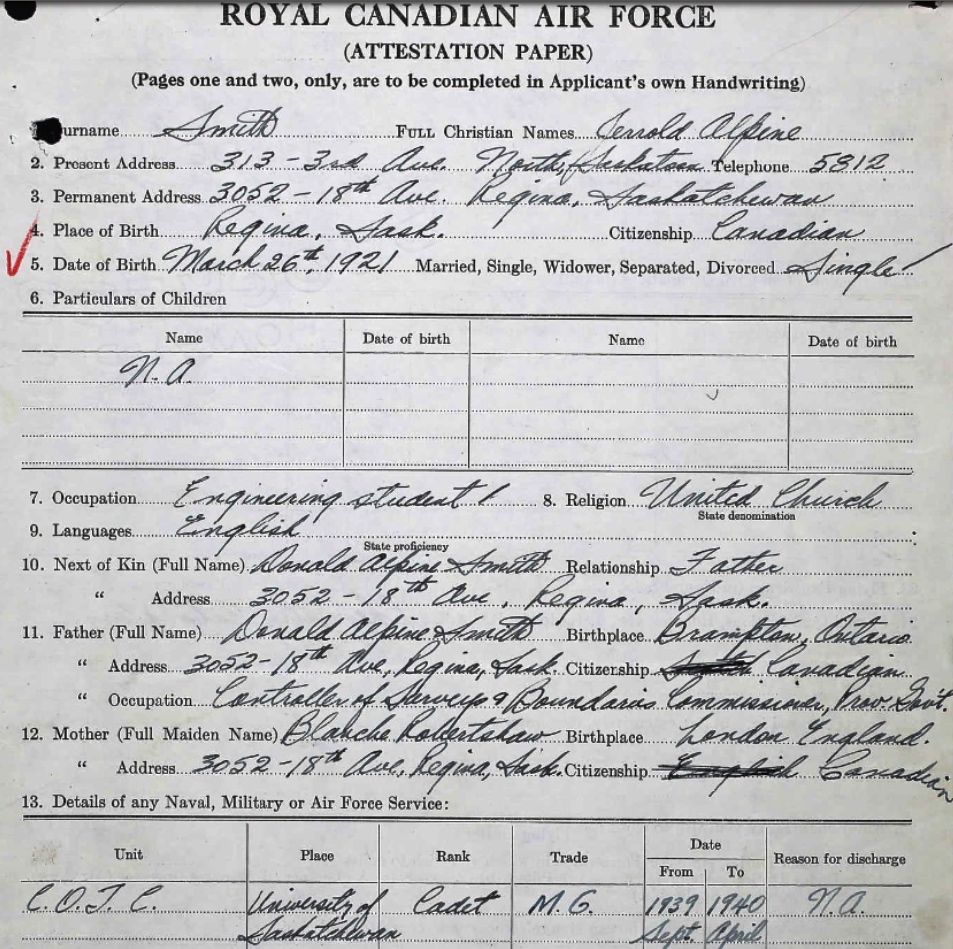 ROYAL CANADIAN AIR FORCE
(ATTESTATION PAPER)
(Pages one and two, only, are to be completed in Applicant's own Handwriting)
urname Smith FULL Christian Names Jerrold Alpine
2. Present Address 313 - 3rd Ave. North, Saskatoon Telephone 5812
3. Permanent Address 3052 - 18th Ave. Regina, Saskatchewan
4. Place of Birth Regina, Sask. Citizenship Canadian
5. Date of Birth March 26th, 1921 Married, Single, Widower, Separated, Divorced Single
6. Particulars of Children
Name Date of birth Name Date of birth
N.A.
7. Occupation Engineering student 8. Religion United Church
State denomination
9. Languages English
State proficiency
10. Next of Kin (Full Name) Donald Alpine Smith Relationship Father
" Address 3052 - 18th Ave, Regina, Sask.
11. Father (Full Name) Donald Alpine Smith Birthplace Brampton, Ontario
" Address 3052-18th Ave, Regina, Sask. Citizenship Canadian
" Occupation Controller of Surveys & Boundaries Commissioner, Prov. Govt.
12. Mother (Full Maiden Name) Blanche Robertshaw Birthplace London England.
" Address 3052-18th Ave, Regina, Sask. Citizenship English Canadian
13. Details of any Naval, Military or Air Force Service:
Unit Place Rank Trade Date Reason for discharge
From To
C.O.T.C. University of Cadet M.G. 1939 1940 N.A.
Saskatchewan Sept. April